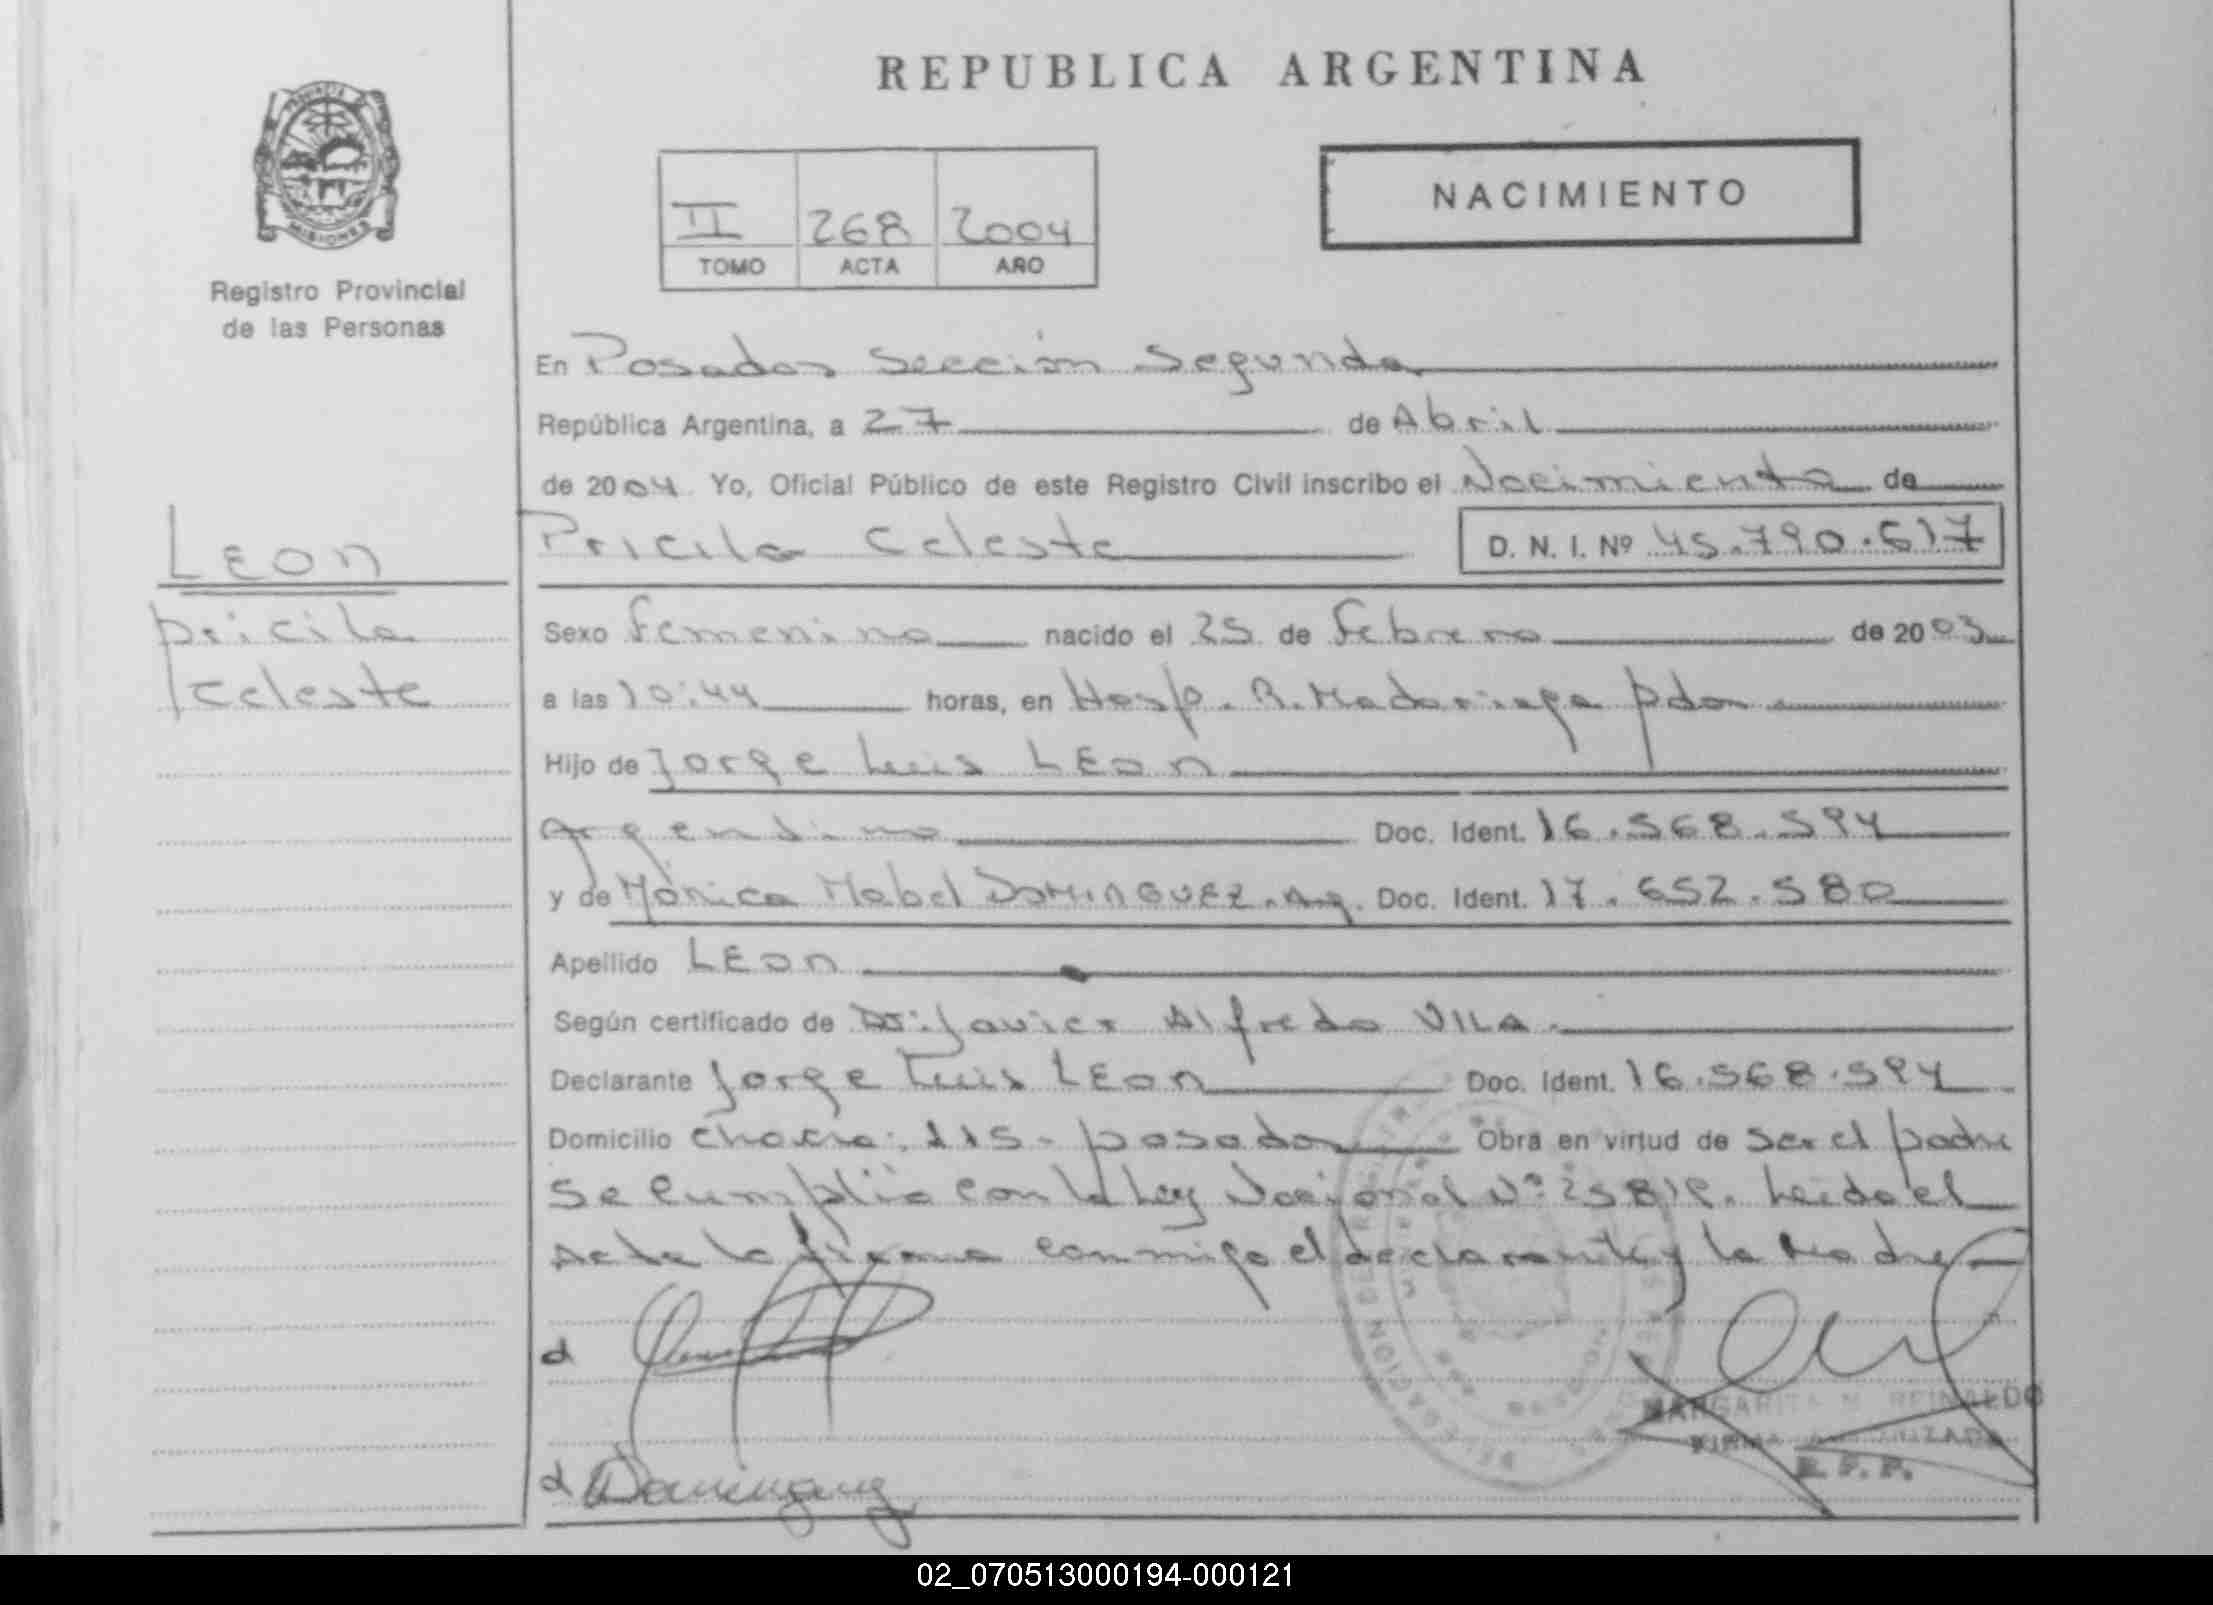 REPUBLICA ARGENTINA
PROVINCIA DE
MISIONES
Registro Provincial
de las Personas
II 268 2004
TOMO ACTA AÑO
NACIMIENTO
En Posadas Sección Segunda
República Argentina, a 27 de Abril
de 2004 Yo, Oficial Público de este Registro Civil inscribo el Nacimiento de
Pricila Celeste D. N. I. Nº 45.790.617
LEON
Pricila
Celeste
Sexo Femenino nacido el 25 de Febrero de 2003
a las 10:44 horas, en Hosp. R. Madariaga Pdas
Hijo de Jorge Luis LEON
Argentino Doc. Ident. 16.568.594
y de Mónica Mabel DOMINGUEZ. Arg. Doc. Ident. 17.652.580
Apellido LEON
Según certificado de Dr. Javier Alfredo VILA.
Declarante Jorge Luis LEON Doc. Ident. 16.568.594
Domicilio Chacra: 115 - Posadas Obra en virtud de ser el padre
Se cumplió con la Ley Nacional Nº 25819. Leida el
Acta la firma conmigo el declarante y la Madre
d
d Dominguez
MARGARITA N. REINALDO
FIRMA AUTORIZADA
R.P.P.
02_070513000194-000121